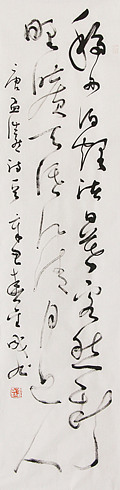 移舟泊烟渚日暮客愁新
野旷天低树江清月近人
唐孟浩然诗 辛丑春